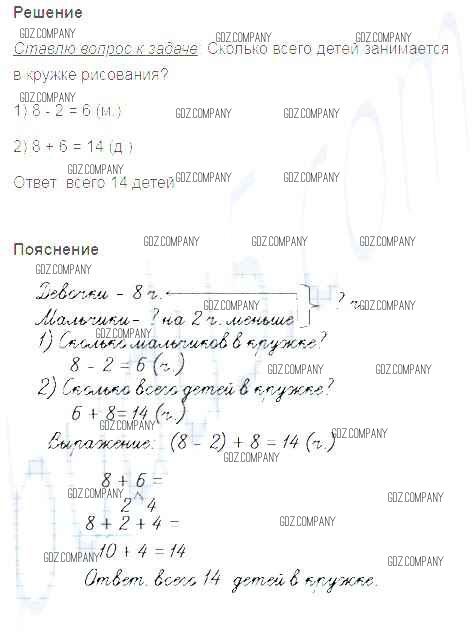 Решение
GDZ.COMPANY GDZ.COMPANY GDZ.COMPANY
Ставлю вопрос к задаче: Сколько всего детей занимается
в кружке рисования?
GDZ.COMPANY
1) 8 - 2 = 6 (м.) GDZ.COMPANY GDZ.COMPANY
2) 8 + 6 = 14 (д.)
GDZ.COMPANY GDZ.COMPANY GDZ.COMPANY
Ответ всего 14 детей
Пояснение GDZ.COMPANY GDZ.COMPANY GDZ.COMPANY
GDZ.COMPANY
Девочки - 8 ч.
? ч. GDZ.COMPANY GDZ.COMPANY
Мальчики - ? на 2 ч. меньше
GDZ.COMPANY
1) Сколько мальчиков в кружке?
8 - 2 = 6 (ч.) GDZ.COMPANY GDZ.COMPANY
2) Сколько всего детей в кружке?
6 + 8 = 14 (ч.)
GDZ.COMPANY
Выражение: (8 - 2) + 8 = 14 (ч.)
GDZ.COMPANY
8 + 6 =
GDZ.COMPANY GDZ.COMPANY
2 4
8 + 2 + 4 = GDZ.COMPANY
10 + 4 = 14
GDZ.COMPANY GDZ.COMPANY
Ответ. всего 14 детей в кружке.